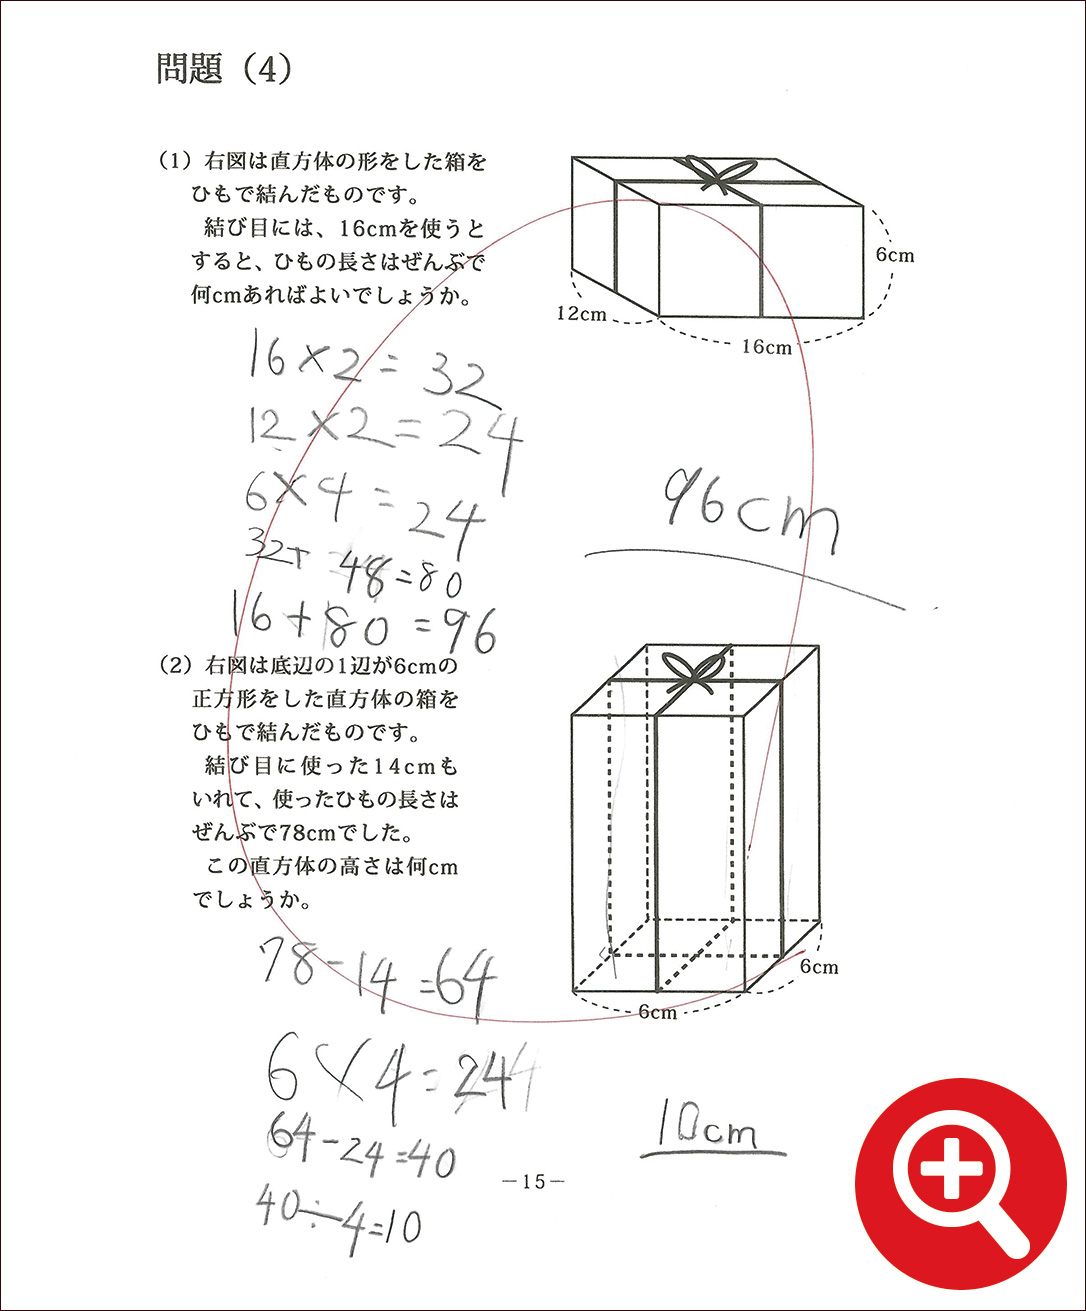 問題（4）
（1）右図は直方体の形をした箱を
ひもで結んだものです。
結び目には、16cmを使うと
すると、ひもの長さはぜんぶで
何cmあればよいでしょうか。
6cm
12cm
16cm
16×2=32
12×2=24
6×4=24
32+48=80
16+80=96
96cm
（2）右図は底辺の1辺が6cmの
正方形をした直方体の箱を
ひもで結んだものです。
結び目に使った14cmも
いれて、使ったひもの長さは
ぜんぶで78cmでした。
この直方体の高さは何cm
でしょうか。
6cm
6cm
78-14=64
6×4=24
64-24=40
40÷4=10
10cm
－15－